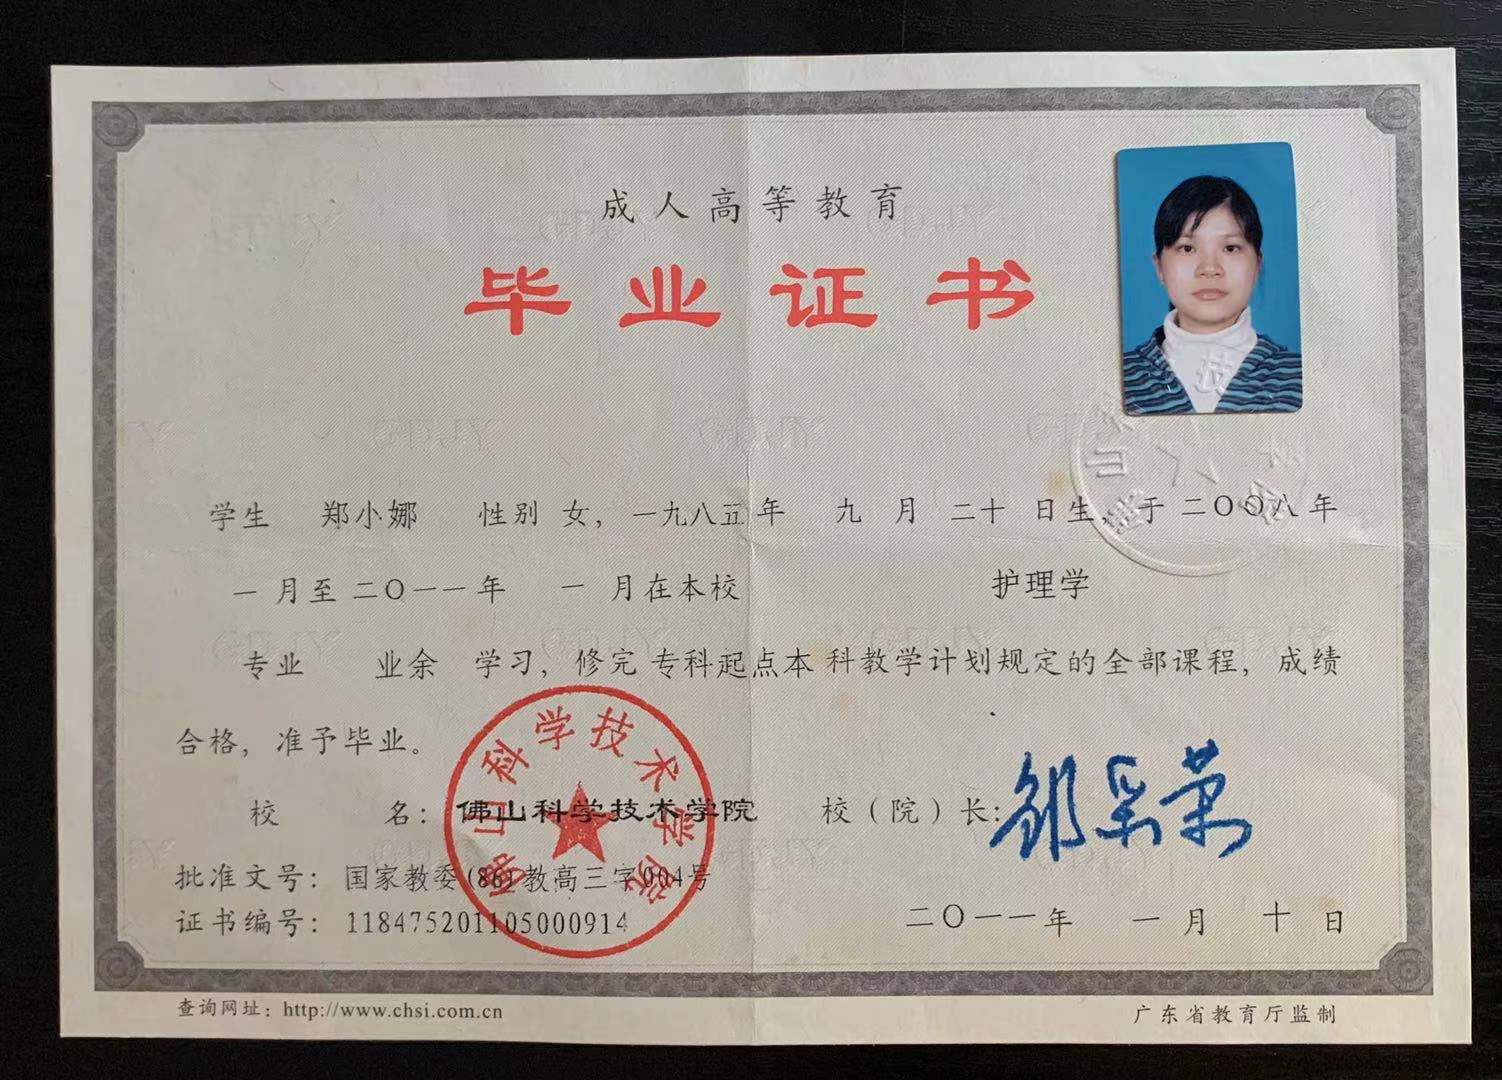 成人高等教育
毕业证书
学生 郑小娜 性别 女，一九八五年 九 月 二十 日生，于 二〇〇八年
一 月至 二〇一一年 一 月在本校 护理学
专业 业余 学习，修完 专科起点本 科教学计划规定的全部课程，成绩
合格，准予毕业。
校 名：佛山科学技术学院 校（院）长：邹采荣
佛山科学技术学院
批准文号：国家教委(86)教高三字004号
证书编号：118475201105000914
二〇一一年 一 月 十 日
查询网址：http://www.chsi.com.cn 广东省教育厅监制